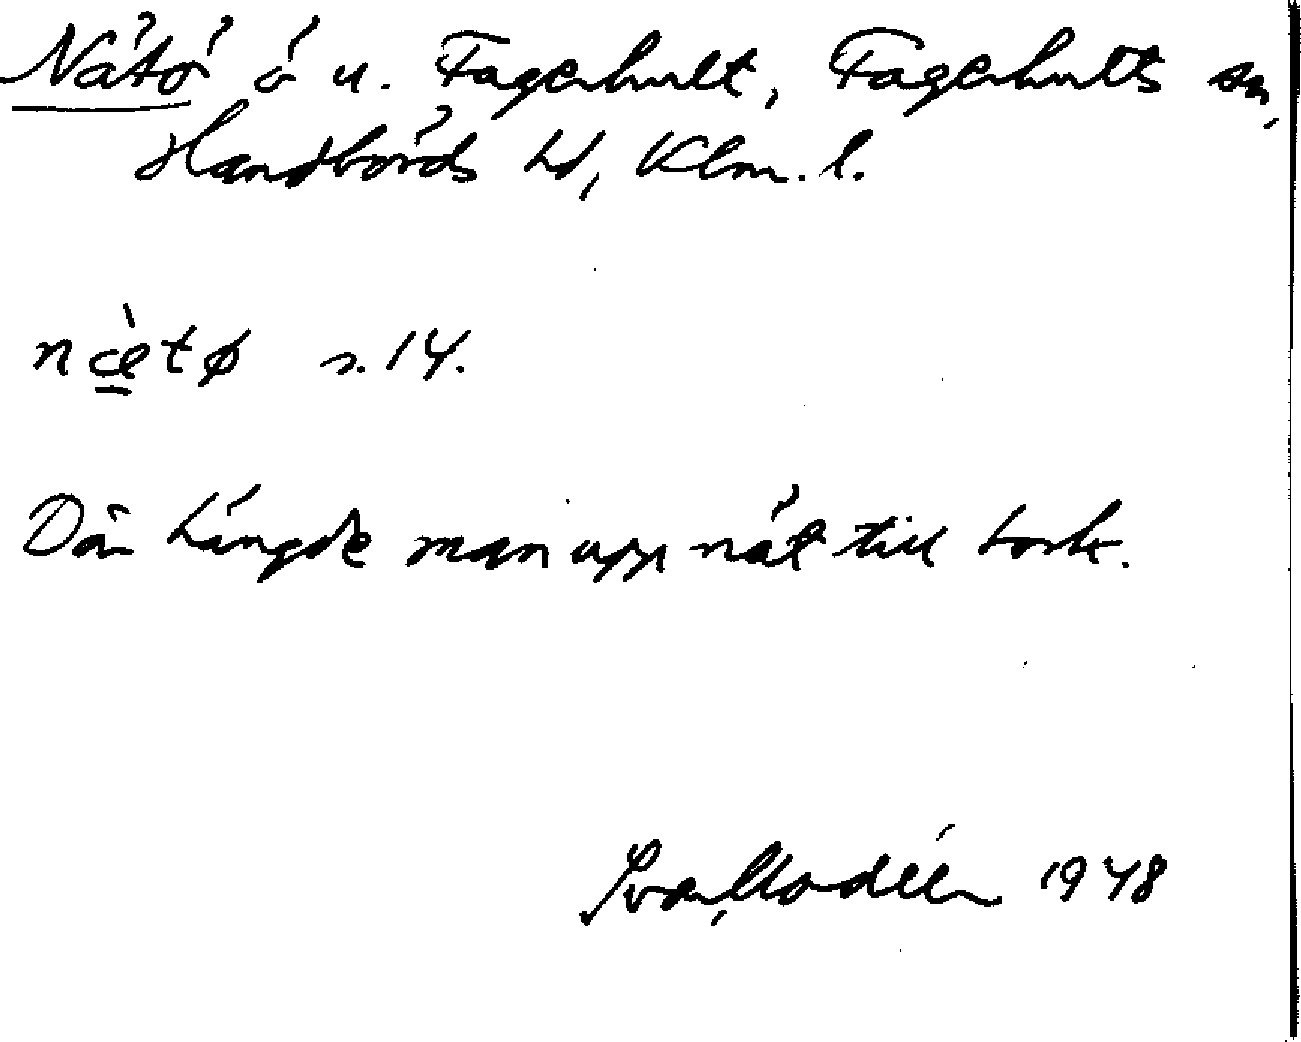 Nätö ö u. Fagerhult, Fagerhults sn,
Handbörds hd, Klm. l.
næ̀tø s. 14.
Där hängde man upp nät till tork.
Ivar Modéer 1948